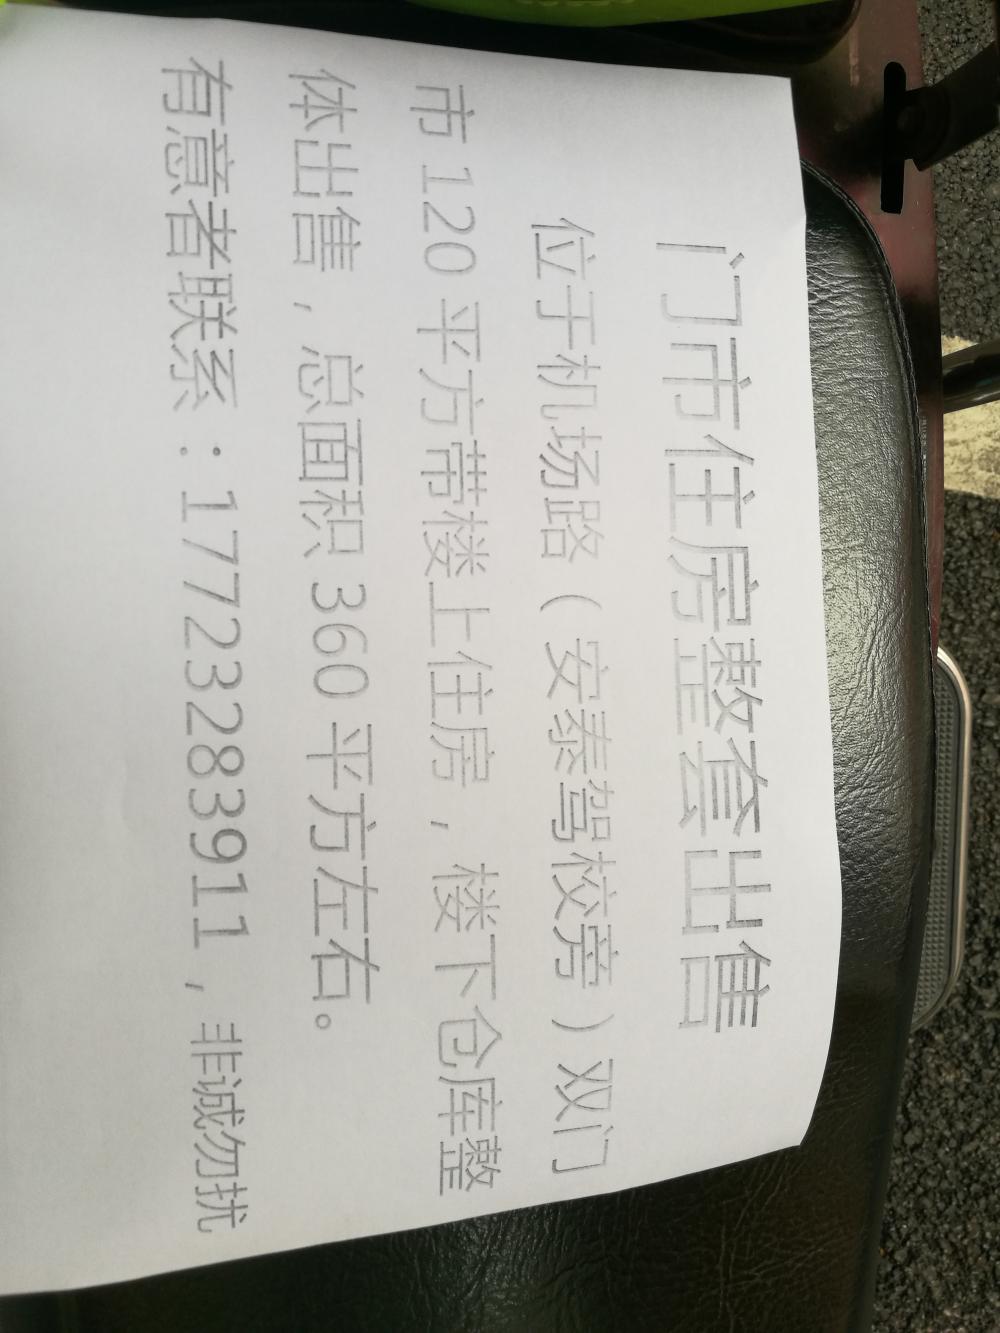 门市住房整套出售
位于机场路（安泰驾校旁）双门
市 120 平方带楼上住房，楼下仓库整
体出售，总面积 360 平方左右。
有意者联系：17723283911，非诚勿扰